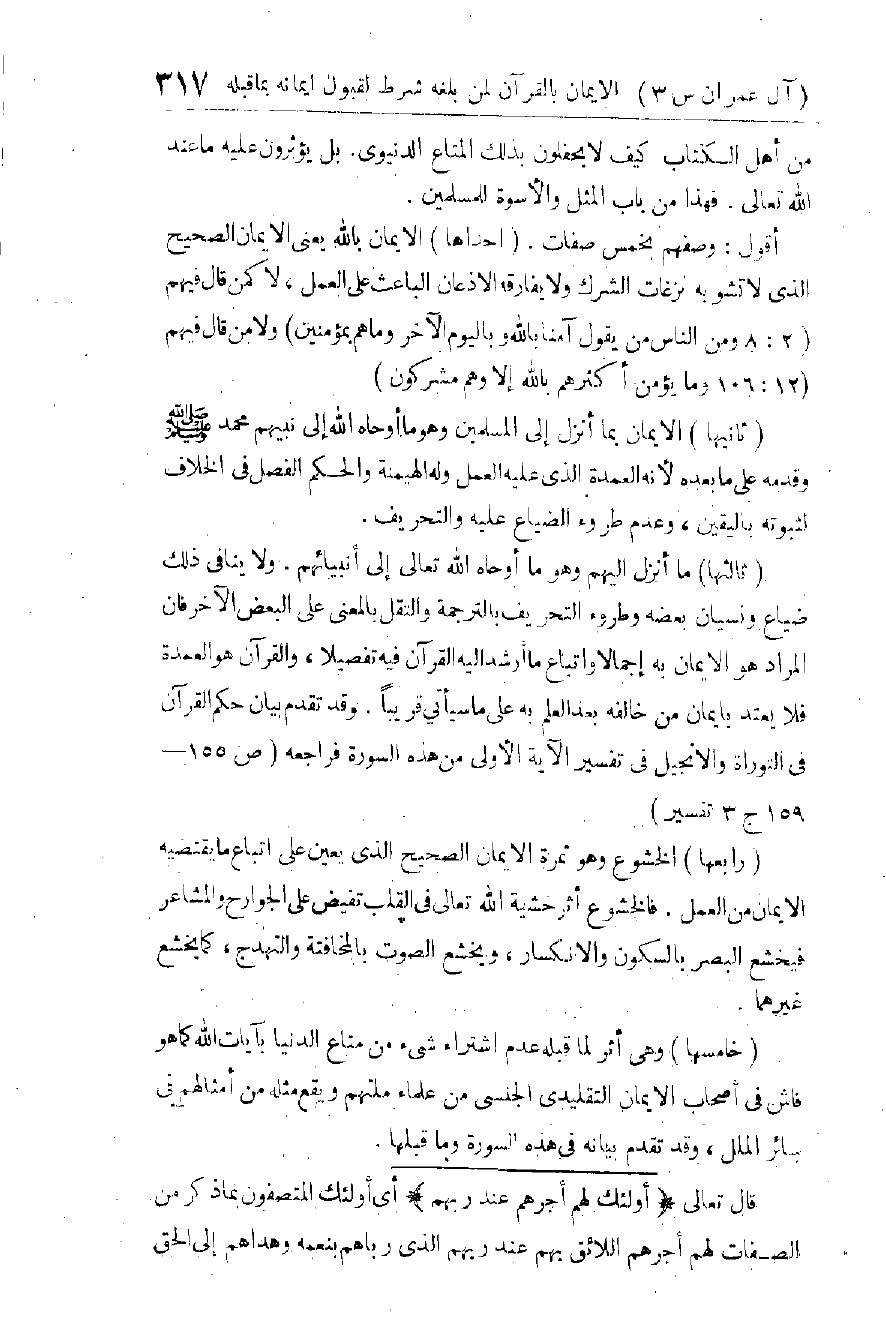 (آل عمران س ٣) الايمان بالقرآن لمن بلغه شرط لقبول ايمانه بماقبله ٣١٧
من أهل الكتاب كيف لا يحفلون بذلك المتاع الدنيوى. بل يؤثرون عليه ما عند
الله تعالى . فهذا من باب المثل والأسوة للمسلمين .
أقول : وصفهم بخمس صفات . ( احداها ) الايمان بالله يعنى الايمان الصحيح
الذى لا تشوبه نزغات الشرك ولا يفارقه الاذعان الباعث على العمل ، لا كمن قال فيهم
( ٢ : ٨ ومن الناس من يقول آمنا بالله وباليوم الآخر وما هم بمؤمنين) ولا من قال فيهم
(١٢ : ١٠٦ وما يؤمن أكثرهم بالله إلا وهم مشركون )
( ثانيها ) الايمان بما أنزل إلى المسلمين وهو ما أوحاه الله إلى نبيهم محمد ﷺ
وقدمه على ما بعده لأنه العمدة الذى عليه العمل وله الهيمنة والحكم الفصل فى الخلاف
لثبوته باليقين ، وعدم طروء الضياع عليه والتحريف .
( ثالثها) ما أنزل اليهم وهو ما أوحاه الله تعالى إلى أنبيائهم . ولا ينافى ذلك
ضياع ونسيان بعضه وطروء التحريف بالترجمة والنقل بالمعنى على البعض الآخر فان
المراد هو الايمان به إجمالا واتباع ما أرشد اليه القرآن فيه تفصيلا ، والقرآن هو العمدة
فلا يعتد بايمان من خالفه بعد العلم به على ما سيأتي قريباً . وقد تقدم بيان حكم القرآن
فى التوراة والانجيل فى تفسير الآية الأولى من هذه السورة فراجعه ( ص ١٥٥ —
١٥٩ ج ٣ تفسير )
( رابعها ) الخشوع وهو ثمرة الايمان الصحيح الذى يعين على اتباع ما يقتضيه
الايمان من العمل . فالخشوع أثر خشية الله تعالى فى القلب تفيض على الجوارح والمشاعر
فيخشع البصر بالسكون والانكسار ، ويخشع الصوت بالمخافتة والتهدج ، كما يخشع
غيرهما .
( خامسها ) وهى أثر لما قبله عدم اشتراء شىء من متاع الدنيا بآيات الله كما هو
فاش فى أصحاب الايمان التقليدى الجنسى من علماء ملتهم ويقع مثله من أمثالهم فى
سائر الملل ، وقد تقدم بيانه فى هذه السورة وما قبلها .
قال تعالى ﴿ أولئك لهم أجرهم عند ربهم ﴾ أى أولئك المتصفون بما ذكر من
الصفات لهم أجرهم اللائق بهم عند ربهم الذى رباهم بنعمه وهداهم إلى الحق